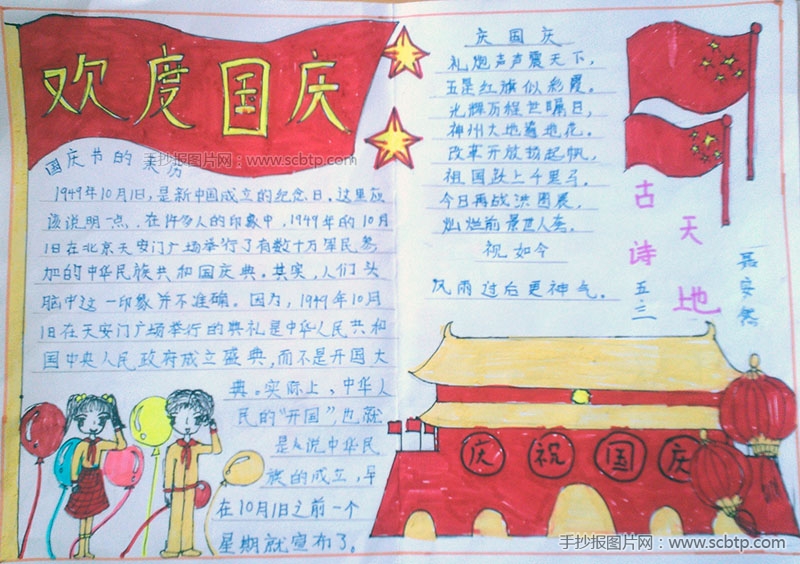 欢度国庆
国庆节的来历
手抄报图片网：www.scbtp.com
1949年10月1日,是新中国成立的纪念日。这里应
该说明一点,在许多人的印象中,1949年的10月
1日在北京天安门广场举行了有数十万军民参
加的中华民族共和国庆典。其实,人们头
脑中这一印象并不准确。因为,1949年10月
1日在天安门广场举行的典礼是中华人民共和
国中央人民政府成立盛典,而不是开国大
典。实际上,中华人
民的“开国”,也就
是么说中华民
族的成立,早
在10月1日之前一个
星期就宣布了。
庆国庆
礼炮声声震天下,
五星红旗似彩霞。
光辉历程世瞩目,
神州大地遍地花。
改革开放扬起帆,
祖国跃上千里马。
今日再战洪图展,
灿烂前景世人夸。
祝如今
风雨过后更神气。
古诗
天地
五三
庆祝国庆
手抄报图片网：www.scbtp.com